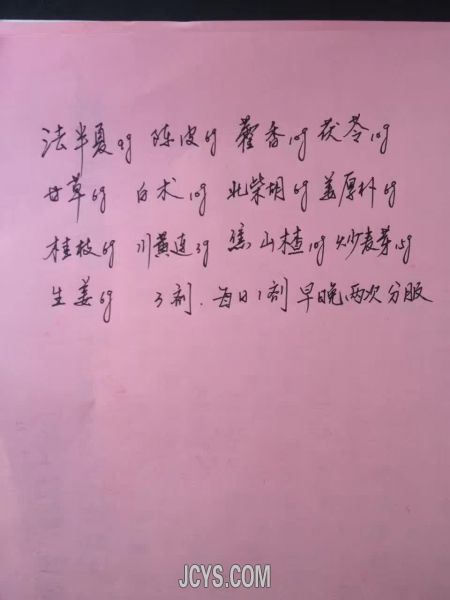 法半夏9g 陈皮6g 藿香10g 茯苓10g
甘草6g 白术10g 北柴胡6g 姜厚朴6g
桂枝6g 川黄连3g 焦山楂10g 炒麦芽15g
生姜6g 3剂.每日1剂 早晚两次分服
JCYS.COM